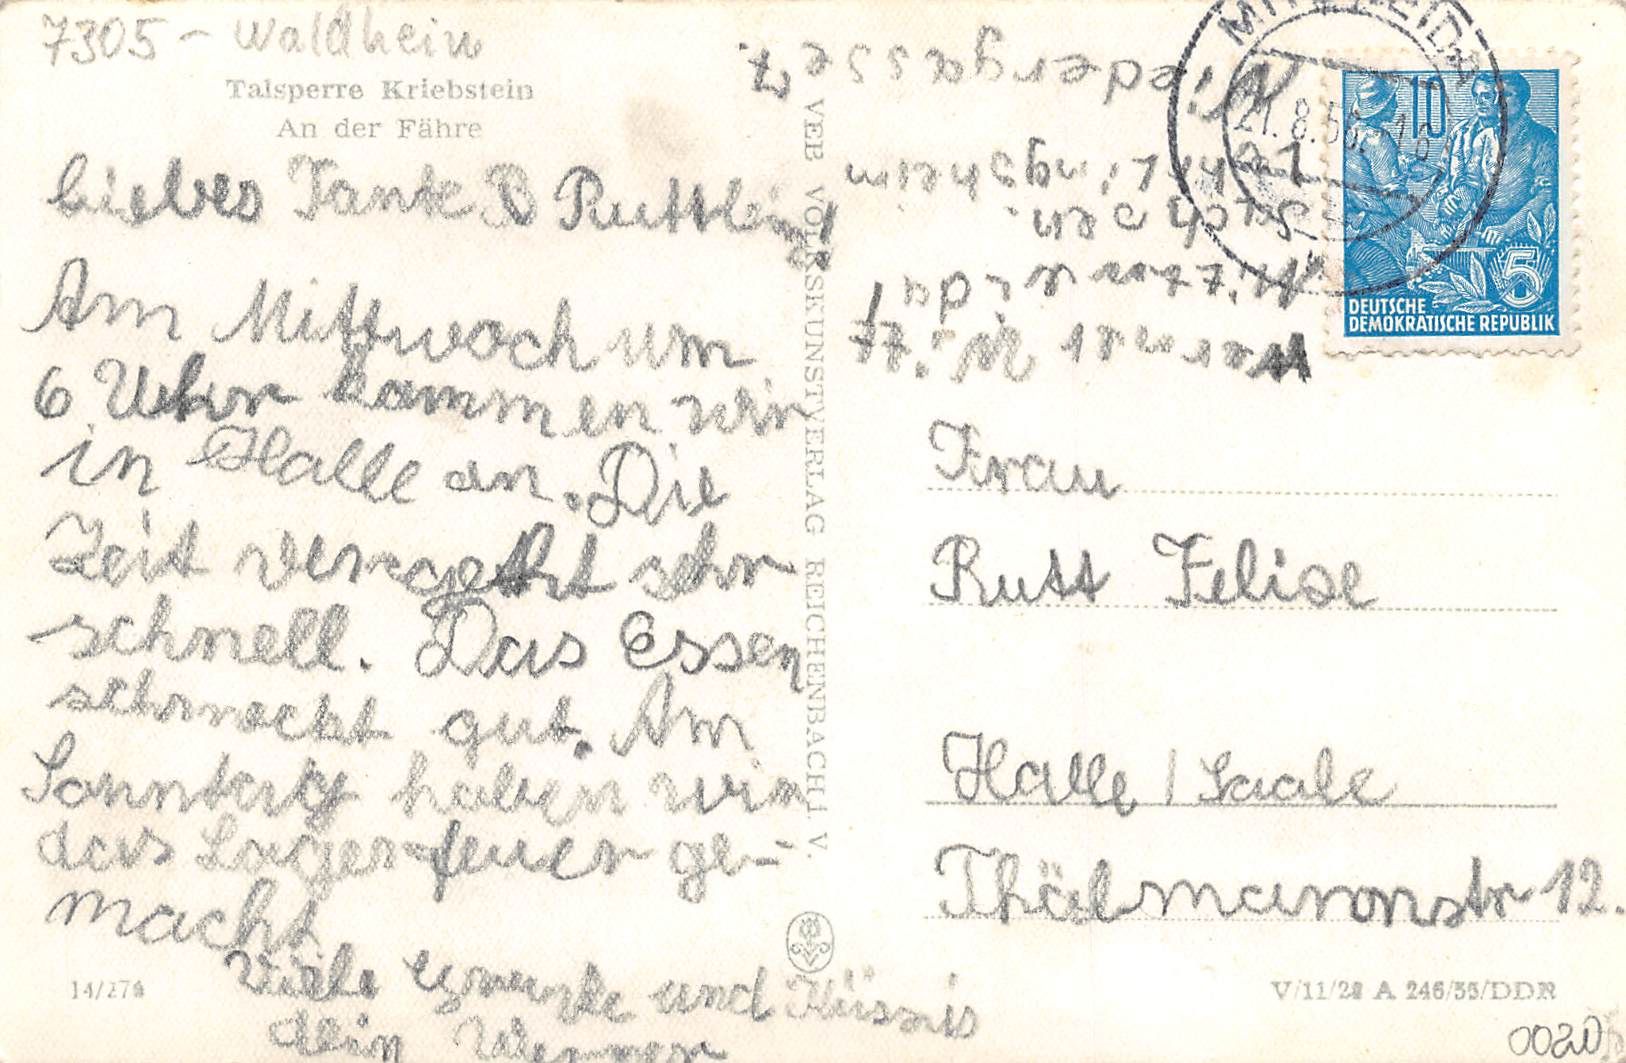 7305 - Waldheim
Talsperre Kriebstein
An der Fähre
Liebes Tante B Ruttling!
Am Mittwoch um
6 Uhr kommen wir
in Halle an. Die
Zeit vergeht sehr
schnell. Das Essen
schmeckt gut. Am
Sonntag haben wir
das Lagerfeuer ge-
macht
Viele und Küsnis
dein Werner
14/279
VEB VOLKSKUNSTVERLAG REICHENBACH i. V.
Werner
Mittweida
Lehrlingsheim
Niedergasse 7.
21.8.56
10
5
DEUTSCHE
DEMOKRATISCHE REPUBLIK
Frau
Rutt Felise
Halle / Saale
Thälmannstr 12.
V/11/28 A 246/55/DDR
0020